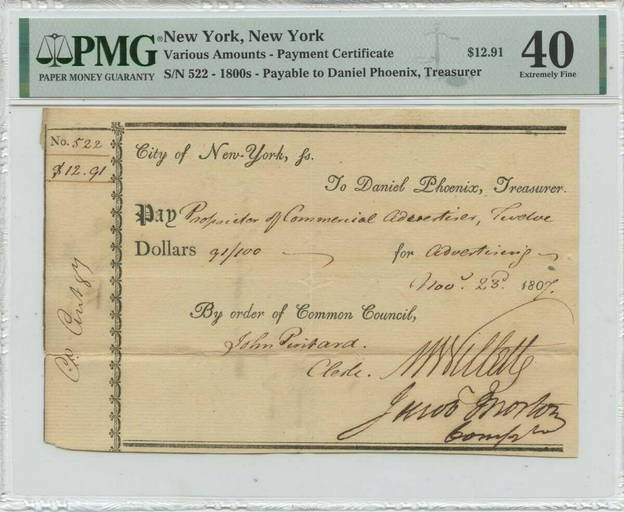 PMG® New York, New York
PAPER MONEY GUARANTY
Various Amounts - Payment Certificate $12.91
S/N 522 - 1800s - Payable to Daniel Phoenix, Treasurer
40
Extremely Fine
No. 522
$12.91
City of New-York, ſs.
To Daniel Phoenix, Treasurer.
Pay Proprietor of Commercial Advertiser, Twelve
Dollars 91/100 for Advertising
Novr. 23d. 1807.
By order of Common Council,
John Pintard.
Clerk. M Willett
Jacob Morton
Comptr